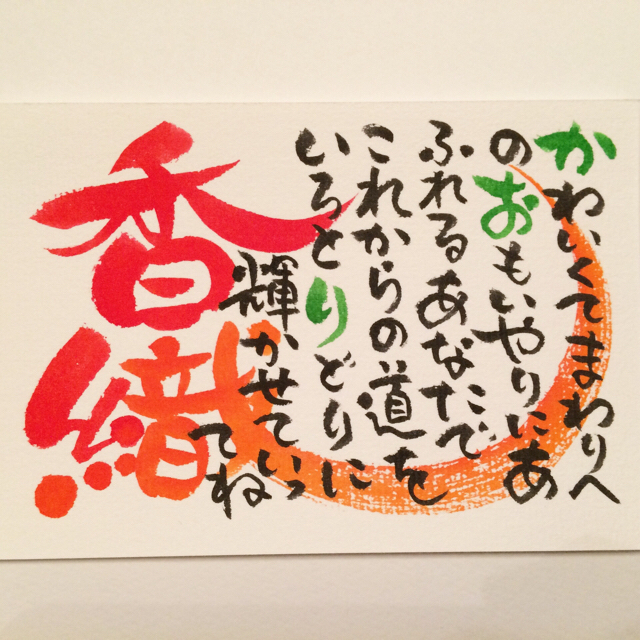 かわいくてまわりへ
のおもいやりにあ
ふれるあなたで
これからの道を
いろとりどりに
輝かせていっ
てね
香織